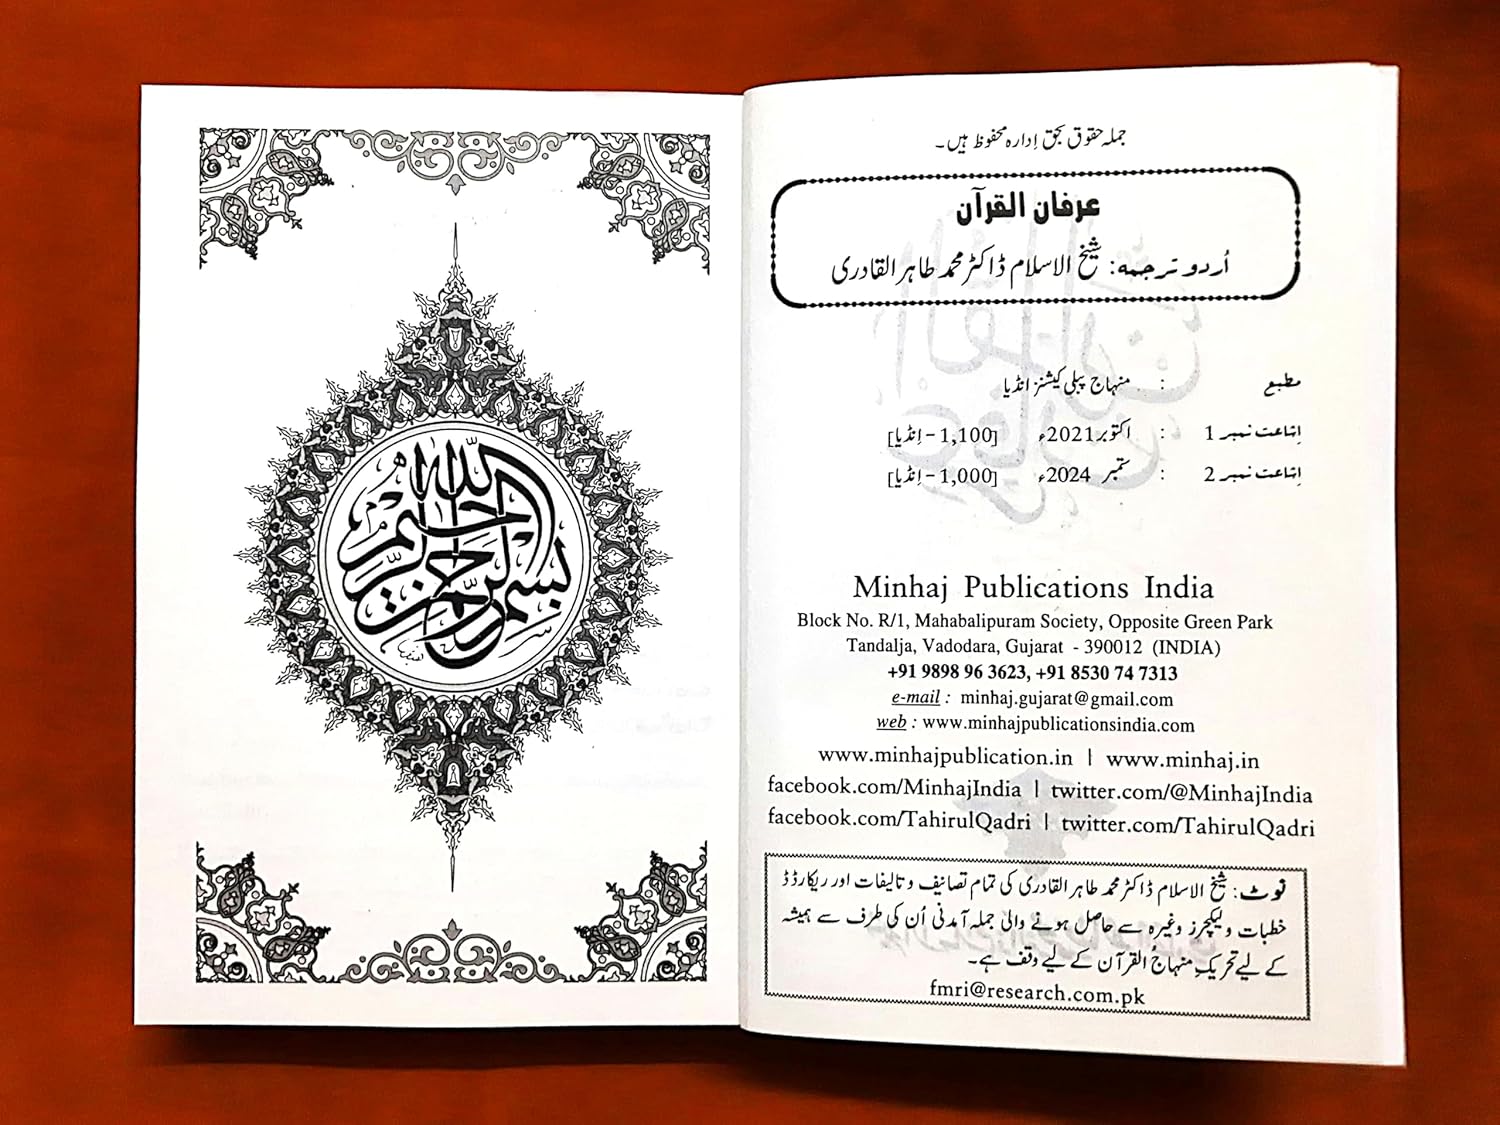 بسم الله الرحمن الرحيم
جملہ حقوق بحق اِدارہ محفوظ ہیں۔
عرفان القرآن
اُردو ترجمہ: شیخ الاسلام ڈاکٹر محمد طاہر القادری
مطبع : منہاج پبلی کیشنز انڈیا
اِشاعت نمبر 1 : اکتوبر 2021ء [1,100 - اِنڈیا]
اِشاعت نمبر 2 : ستمبر 2024ء [1,000 - اِنڈیا]
Minhaj Publications India
Block No. R/1, Mahabalipuram Society, Opposite Green Park
Tandalja, Vadodara, Gujarat - 390012 (INDIA)
+91 9898 96 3623, +91 8530 74 7313
e-mail : minhaj.gujarat@gmail.com
web : www.minhajpublicationsindia.com
www.minhajpublication.in | www.minhaj.in
facebook.com/MinhajIndia | twitter.com/@MinhajIndia
facebook.com/TahirulQadri | twitter.com/TahirulQadri
نوٹ: شیخ الاسلام ڈاکٹر محمد طاہر القادری کی تمام تصانیف و تالیفات اور ریکارڈڈ
خطبات و لیکچرز وغیرہ سے حاصل ہونے والی جملہ آمدنی اُن کی طرف سے ہمیشہ
کے لیے تحریکِ منہاجُ القرآن کے لیے وقف ہے۔
fmri@research.com.pk